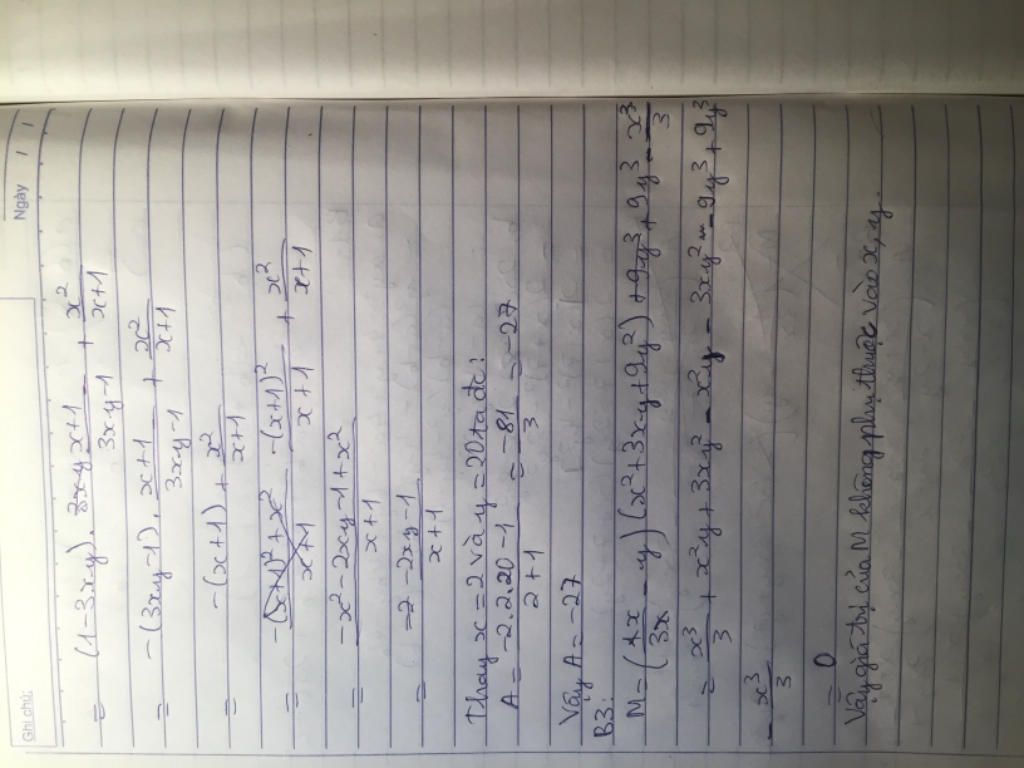 Ghi chú:
Ngày / /
= (1-3xy). x+1/3xy-1 + x²/x+1
= -(3xy-1). x+1/3xy-1 + x²/x+1
= -(x+1) + x²/x+1
= -(x+1)²/x+1 + x²/x+1
= -x²-2xy-1+x²/x+1
= -2xy-1/x+1
Thay x=2 và y=20 ta đc:
A= -2.2.20-1/2+1 = -81/3 = -27
Vậy A= -27
B3:
-y)(x²+3xy+9y²)+9y³+9y³-x³/3
= x³/3 + x²y+3xy²-x²y-3xy²-9y³+9y³
-x³/3
= 0
Vậy giá trị của M không phụ thuộc vào x,y.